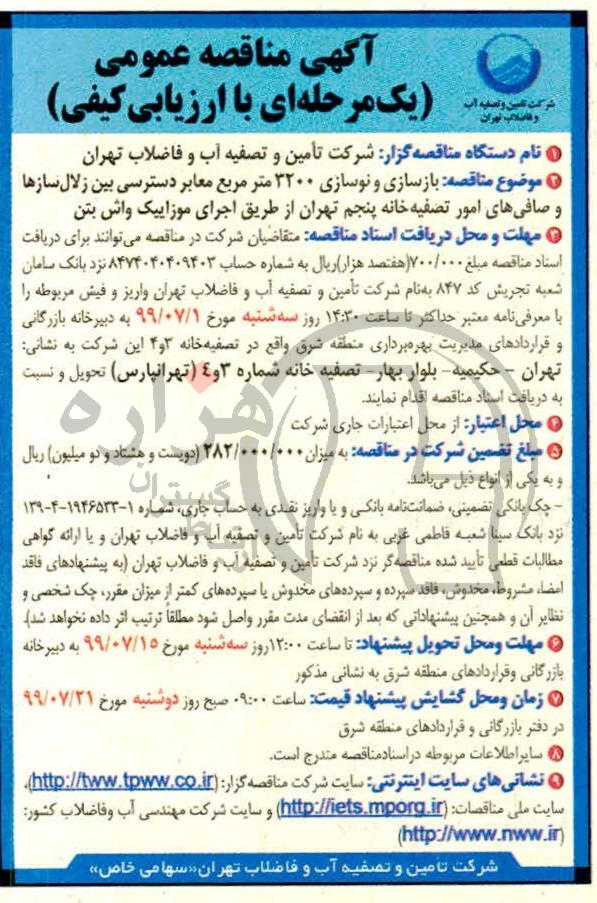 آگهی مناقصه عمومی
(یک‌مرحله‌ای با ارزیابی کیفی)
شرکت تامین و تصفیه آب
و فاضلاب تهران
۱ نام دستگاه مناقصه‌گزار: شرکت تأمین و تصفیه آب و فاضلاب تهران
۲ موضوع مناقصه: بازسازی و نوسازی ۳۲۰۰ متر مربع معابر دسترسی بین زلال‌سازها
و صافی‌های امور تصفیه‌خانه پنجم تهران از طریق اجرای موزاییک واش بتن
۳ مهلت و محل دریافت اسناد مناقصه: متقاضیان شرکت در مناقصه می‌توانند برای دریافت
اسناد مناقصه مبلغ ۷۰۰/۰۰۰(هفتصد هزار)ریال به شماره حساب ۸۴۷۴۰۴۰۴۰۹۴۰۳ نزد بانک سامان
شعبه تجریش کد ۸۴۷ به‌نام شرکت تأمین و تصفیه آب و فاضلاب تهران واریز و فیش مربوطه را
با معرفی‌نامه معتبر حداکثر تا ساعت ۱۴:۳۰ روز سه‌شنبه مورخ ۹۹/۰۷/۱ به دبیرخانه بازرگانی
و قراردادهای مدیریت بهره‌برداری منطقه شرق واقع در تصفیه‌خانه ۳و۴ این شرکت به نشانی:
تهران - حکیمیه- بلوار بهار- تصفیه خانه شماره ۳و٤ (تهرانپارس) تحویل و نسبت
به دریافت اسناد مناقصه اقدام نمایند.
۴ محل اعتبار: از محل اعتبارات جاری شرکت
۵ مبلغ تضمین شرکت در مناقصه: به میزان ۲۸۲/۰۰۰/۰۰۰ (دویست و هشتاد و دو میلیون) ریال
و به یکی از انواع ذیل می‌باشد.
- چک بانکی تضمینی، ضمانت‌نامه بانکی و یا واریز نقدی به حساب جاری، شماره ۱-۱۹۴۶۵۳۳-۴-۱۳۹
نزد بانک سینا شعبه فاطمی غربی به نام شرکت تأمین و تصفیه آب و فاضلاب تهران و یا ارائه گواهی
مطالبات قطعی تأیید شده مناقصه‌گر نزد شرکت تأمین و تصفیه آب و فاضلاب تهران (به پیشنهادهای فاقد
امضا، مشروط، مخدوش، فاقد سپرده و سپرده‌های مخدوش یا سپرده‌های کمتر از میزان مقرر، چک شخصی و
نظایر آن و همچنین پیشنهاداتی که بعد از انقضای مدت مقرر واصل شود مطلقاً ترتیب اثر داده نخواهد شد).
۶ مهلت ومحل تحویل پیشنهاد: تا ساعت ۱۲:۰۰روز سه‌شنبه مورخ ۹۹/۰۷/۱۵ به دبیرخانه
بازرگانی وقراردادهای منطقه شرق به نشانی مذکور
۷ زمان ومحل گشایش پیشنهاد قیمت: ساعت ۰۹:۰۰ صبح روز دوشنبه مورخ ۹۹/۰۷/۲۱
در دفتر بازرگانی و قراردادهای منطقه شرق
۸ سایراطلاعات مربوطه دراسنادمناقصه مندرج است.
۹ نشانی‌های سایت اینترنتی: سایت شرکت مناقصه‌گزار: (http://tww.tpww.co.ir)،
سایت ملی مناقصات: (http://iets.mporg.ir) و سایت شرکت مهندسی آب وفاضلاب کشور:
(http://www.nww.ir)
شرکت تامین و تصفیه آب و فاضلاب تهران«سهامی خاص»
هزاره
گستران